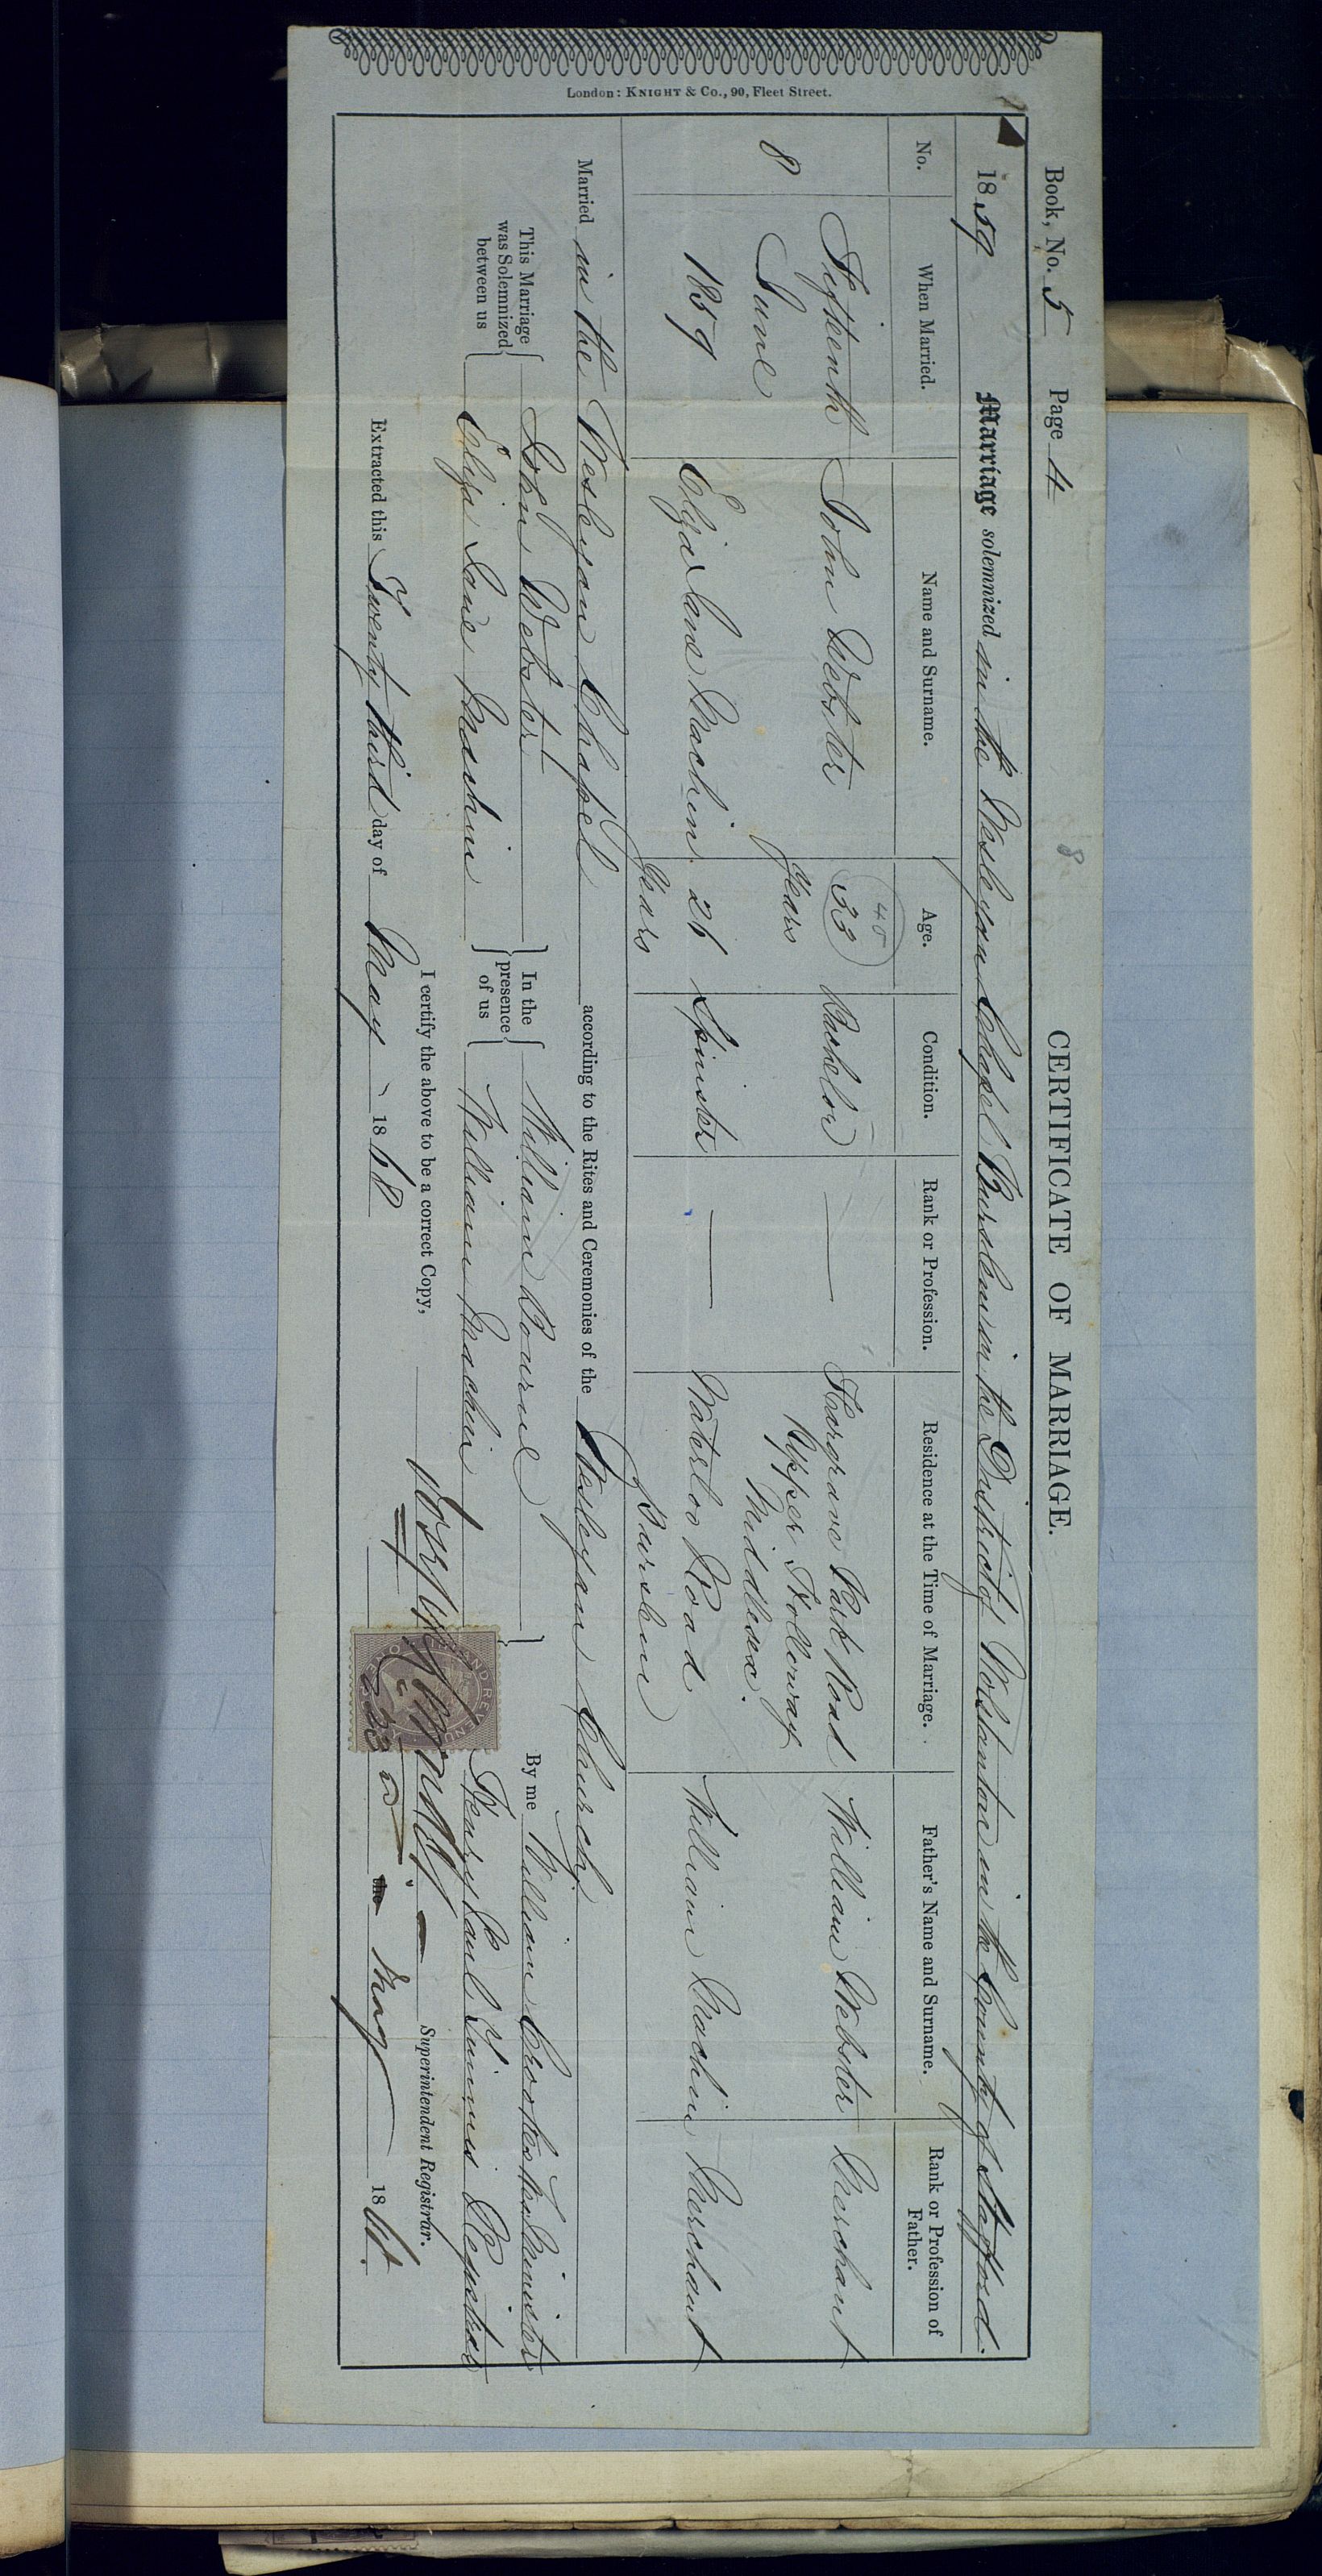 London: KNIGHT & Co., 90, Fleet Street.
8
Book, No. 5 Page 4
CERTIFICATE OF MARRIAGE.
1859 Marriage solemnized in the Wesleyan Chapel Burslem in the District of Wolstanton in the County of Stafford.
No. When Married. Name and Surname. Age. Condition. Rank or Profession. Residence at the Time of Marriage. Father's Name and Surname. Rank or Profession of Father.
40
8 Fifteenth June 1859 John Webster 33 years Bachelor — Hargrave Park Road Upper Holloway Middlesex. William Webster Merchant
Eliza Jane Machin 26 years Spinster — Waterloo Road Burslem William Machin Merchant
Married in the Wesleyan Chapel according to the Rites and Ceremonies of the Wesleyan Church
This Marriage was Solemnized between us
John Webster
Eliza Jane Machin
In the presence of us
William Bourne
William Machin
By me William Minister
Henry Paul Registrar
I certify the above to be a correct Copy,
Superintendent Registrar.
Extracted this Twenty third day of May 1868
INLAND REVENUE
23 the May 1868.